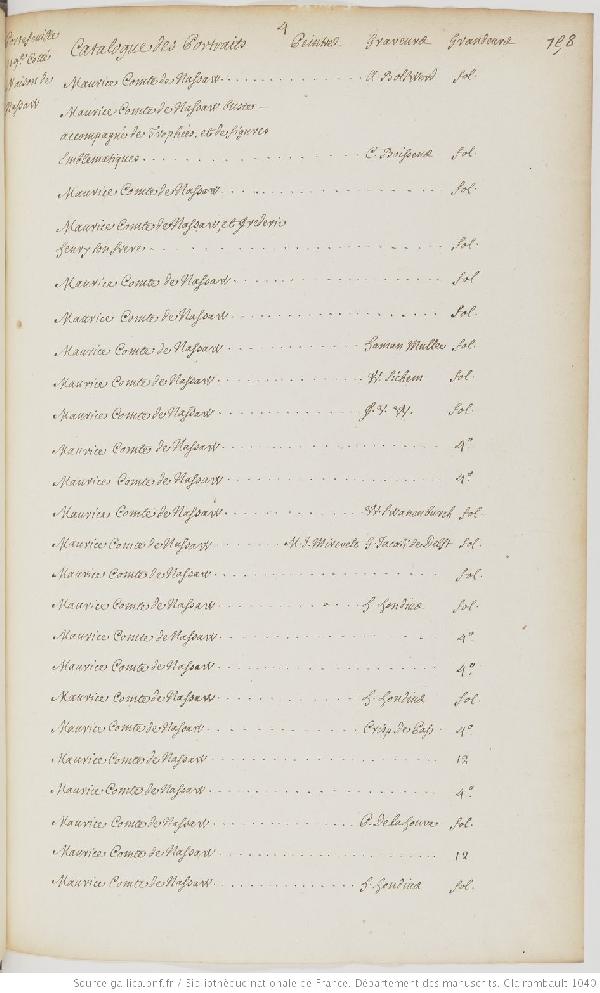 4
Catalogue des Portraits Peintre Graveure Grandeure 758
Maison de
Nassaw
Maurice Comte de Nassaw . . . A Bolswerd fol.
Maurice Comte de Nassaw buste
accompagné de Trophées, et de figures
Emblematiques . . . C. Boissene fol.
Maurice Comte de Nassaw . . . fol.
Maurice Comte de Nassaw, et frederic
henry son frere . . . fol.
Maurice Comte de Nassaw . . . fol
Maurice Comte de Nassaw . . . fol.
Maurice Comte de Nassaw . . . haman Muller fol.
Maurice Comte de Nassaw . . . W. Sichem fol.
Maurice Comte de Nassaw . . . fol.
Maurice Comte de Nassaw . . . 4°
Maurice Comte de Nassaw . . . 4°
Maurice Comte de Nassaw . . . W Swanenburch fol.
Maurice Comte de Nassaw . . . M. J. Mirevelt G Jacob de Delft fol.
Maurice Comte de Nassaw . . . fol.
Maurice Comte de Nassaw . . . h hondius fol.
Maurice Comte de Nassaw . . . 4°
Maurice Comte de Nassaw . . . 4°
Maurice Comte de Nassaw . . . h. hondius fol.
Maurice Comte de Nassaw . . . Crisp. de Pass 4°
Maurice Comte de Nassaw . . . 12
Maurice Comte de Nassaw . . . 4°
Maurice Comte de Nassaw . . . C. de la houve fol.
Maurice Comte de Nassaw . . . 12
Maurice Comte de Nassaw . . . h. hondius fol.
Source gallica.bnf.fr / Bibliothèque nationale de France. Département des manuscrits. Clairambault 1040